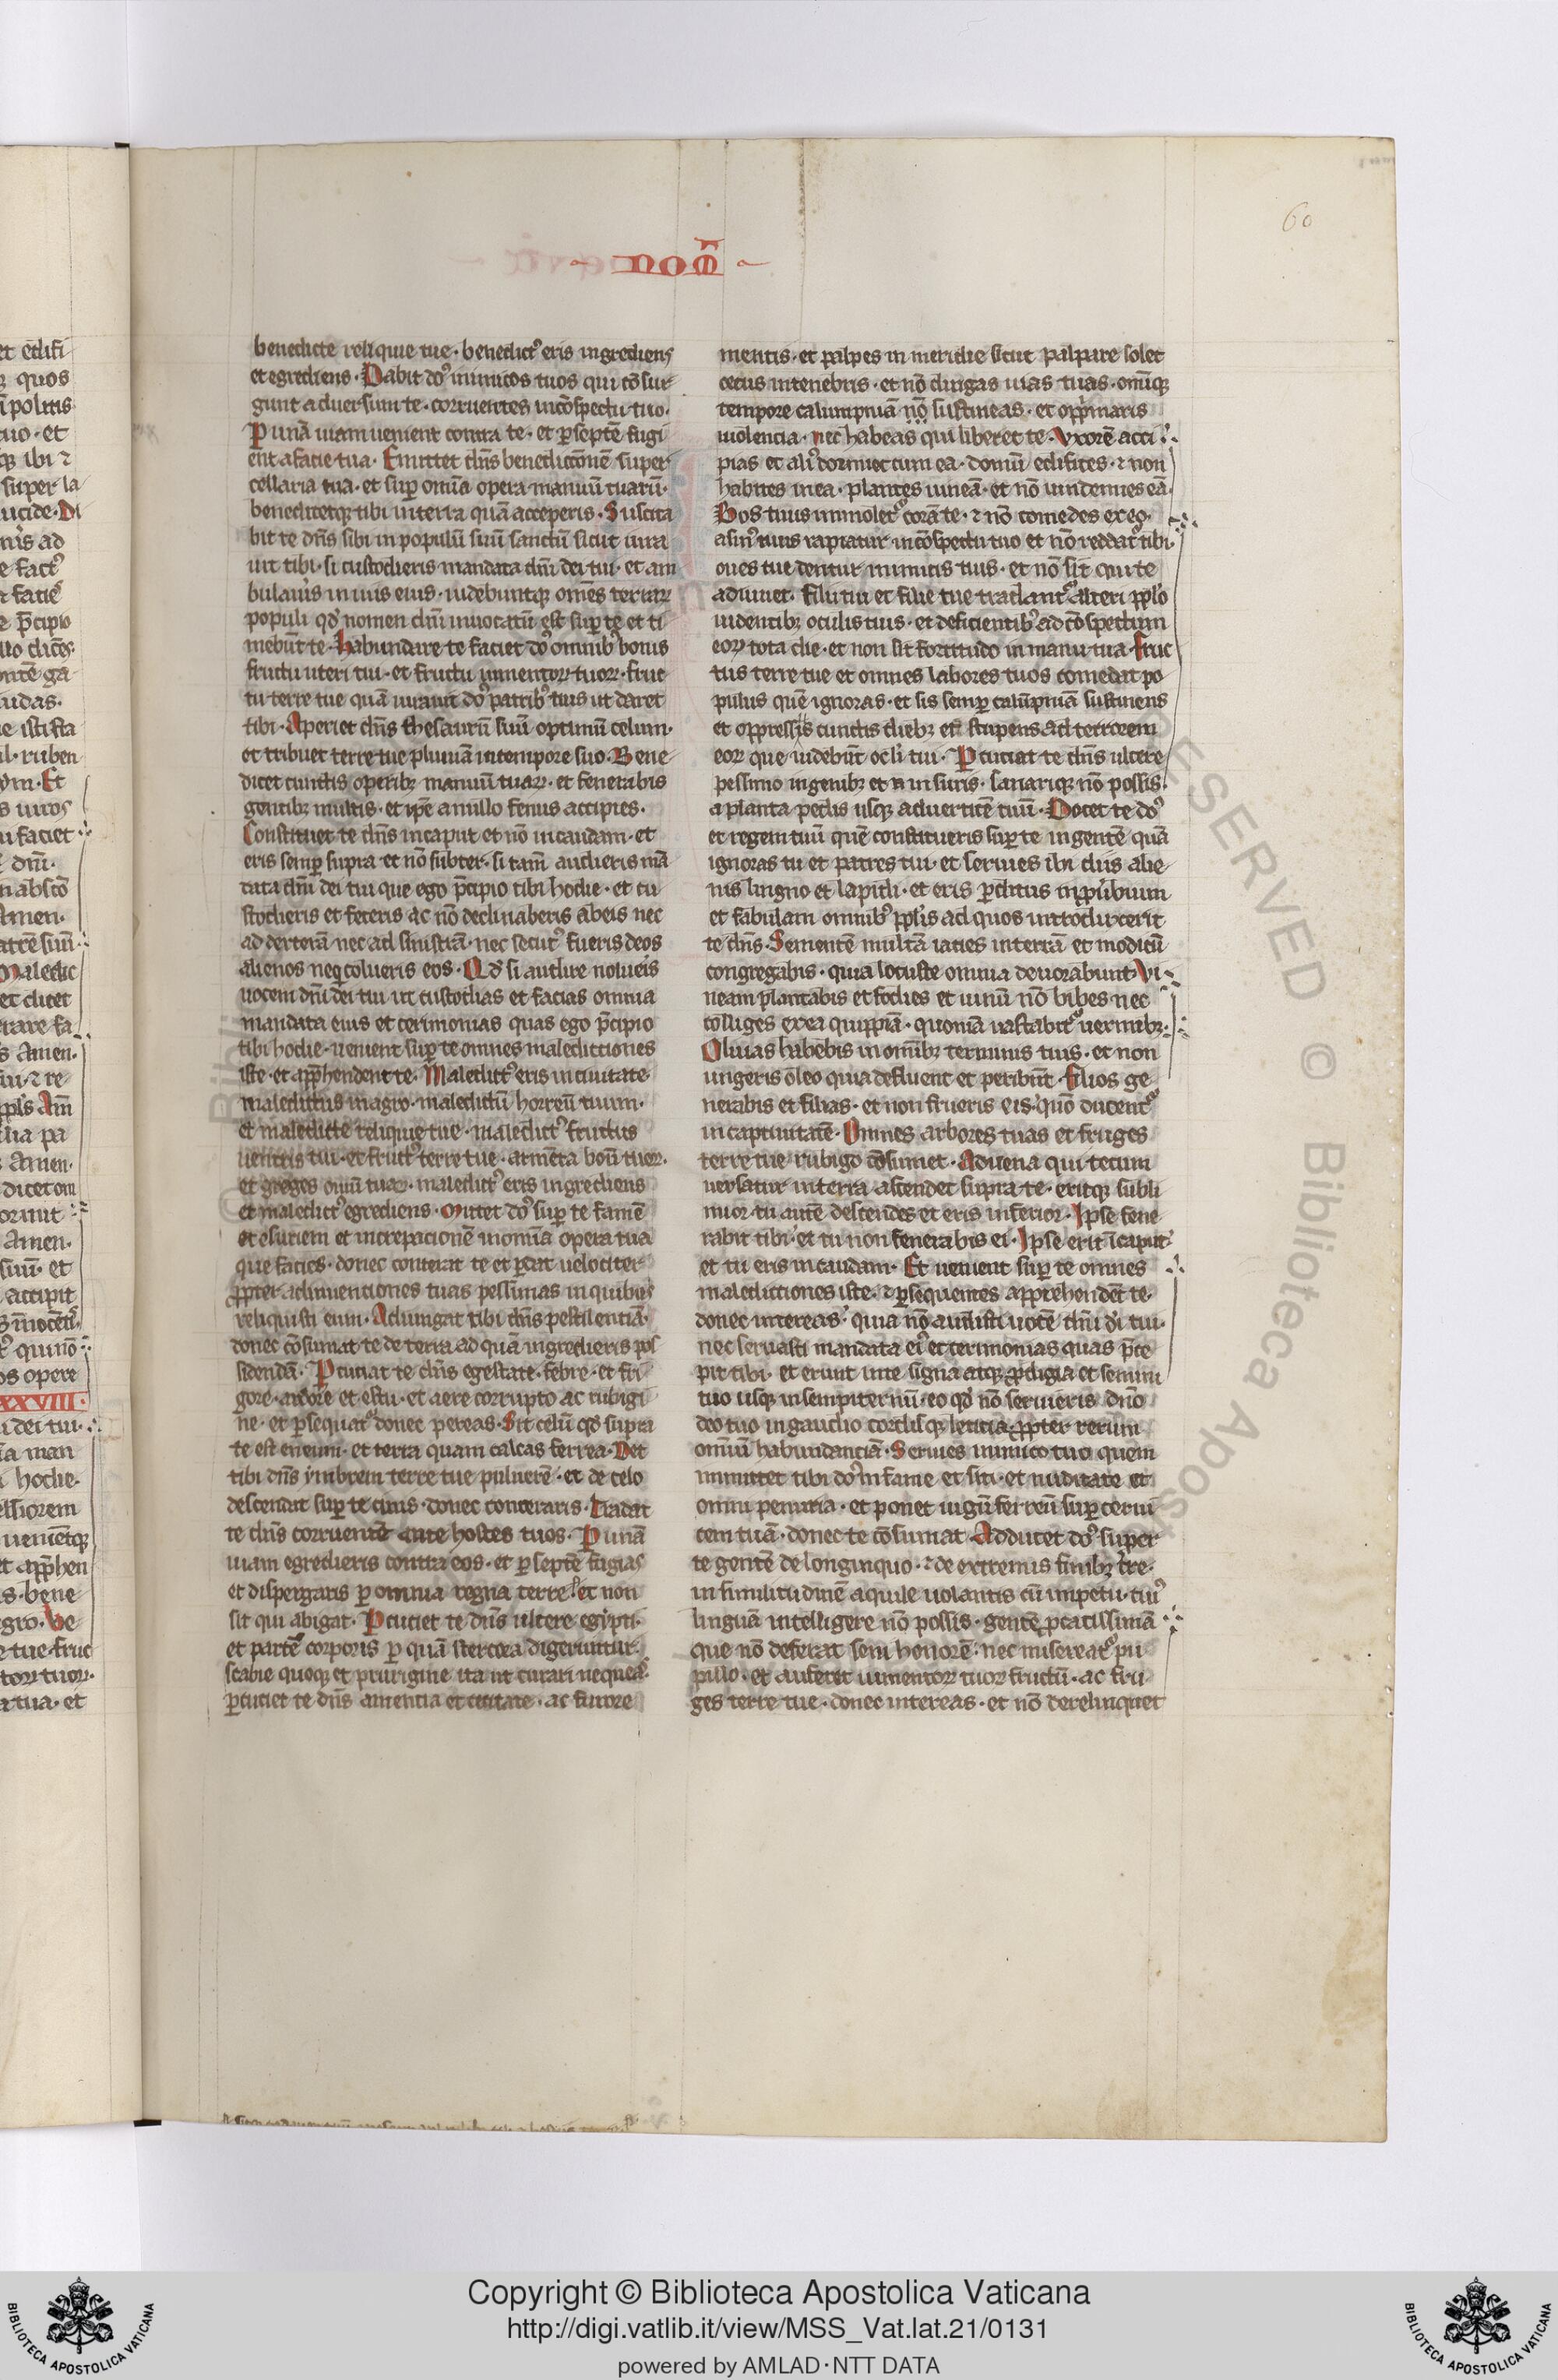 60
nom̄
benedicte reliquie tue · benedictꝰ eris ingrediens
et egrediens · Dabit dn̄s inimicos tuos qui cōsur
gunt aduersum te · corruentes in cōspectu tuo ·
P unā uiam uenient contra te · et ꝑ septē fugi
ent a facie tua · Emittet dn̄s benedictionē super
cellaria tua · et suꝑ om̄ia opera manuū tuarū ·
benedicetqꝫ tibi in terra quā acceperis · Suscita
bit te dn̄s sibi in populū suū sanctū sicut iura
uit tibi · si custodieris mandata dn̄i dei tui · et am
bulaueris in uiis eius · uidebuntqꝫ om̄es terrarꝫ
populi qd̓ nomen dn̄i inuocatū est suꝑ te et ti
mebūt te · Habundare te faciet dn̄s omnibꝰ bonis
fructu uteri tui · et fructu iumentorꝫ tuorꝫ · fruc
tu terre tue quā iurauit dn̄s patribꝰ tuis ut daret
tibi · Aperiet dn̄s thesaurū suū optimū celum ·
et tribuet terre tue pluuiā in tempore suo · Bene
dicet cunctis operibꝫ manuū tuarꝫ · et fenerabis
gentibꝫ multis · et ip̄e a nullo fenus accipies ·
Constituet te dn̄s in caput et nō in caudam · et
eris semꝑ supra et nō subter · si tam̄ audieris mā
data dn̄i dei tui que ego p̄cipio tibi hodie · et cu
stodieris et feceris ac nō declinaberis ab eis nec
ad dexterā nec ad sinistrā · nec secutꝰ fueris deos
alienos neqꝫ colueris eos · Qd̓ si audire nolueris
uocem dn̄i dei tui ut custodias et facias omnia
mandata eius et cerimonias quas ego p̄cipio
tibi hodie · uenient suꝑ te omnes maledictiones
iste · et app̄hendent te · Maledictꝰ eris in ciuitate
maledictus in agro · maledictū horreū tuum ·
et maledicte reliquie tue · maledictꝰ fructus
uentris tui · et fructꝰ terre tue · armēta boū tuorꝫ ·
et greges ouiū tuarꝫ · maledictꝰ eris ingrediens
et maledictꝰ egrediens · Mittet dn̄s suꝑ te famē
et esuriem et increpacionē in om̄ia opera tua
que facies · donec conterat te et ꝑdat uelociter
ꝓpter adinuenciones tuas pessimas in quibus
reliquisti eum · Adiungat tibi dn̄s pestilentiā
donec cōsumat te de terra ad quā ingredieris pos
sidendā · Pcuciat te dn̄s egestate · febre · et fri
gore · ardore et estu · et aere corrupto ac rubigi
ne · et ꝑsequat᷑ donec pereas · Sit celū qd̓ supra
te est eneum · et terra quam calcas ferrea · Det
tibi dn̄s ymbrem terre tue puluerē · et de celo
descendat suꝑ te cinis · donec conteraris · Tradat
te dn̄s corruentē ante hostes tuos · P unā
uiam egredieris contra eos · et ꝑ septē fugias
et dispergaris ꝑ omnia regna terre · et non
sit qui abigat · Pcuciet te dn̄s ulcere egypti ·
et partē corporis ꝑ quā stercora digeruntur
scabie quoqꝫ et prurigine ita ut curari nequeas ·
ꝑcuciet te dn̄s amentia et cecitate · ac furore
mentis · et palpes in meridie sicut palpare solet
cecus in tenebris · et nō dirigas uias tuas · om̄iqꝫ
tempore calumpniā nō sustineas · et opp̄maris
uiolencia · nec habeas qui liberet te · Vxorē acci
pias et aliꝰ dormiet cum ea · domū edifices · ⁊ non
habites in ea · plantes uineā · et nō uindemies eā ·
Bos tuus immolet᷑ corā te · ⁊ nō comedes ex eo ·
asinꝰ tuus rapiatur in cōspectu tuo et nō reddat᷑ tibi ·
oues tue dentur inimicis tuis · et nō sit qui te
adiuuet · filii tui et filie tue tradant᷑ alteri pp̄lo
uidentibꝫ oculis tuis · et deficientibꝰ ad cōspectum
eorꝫ tota die · et non sit fortitudo in manu tua · Fruc
tus terre tue et omnes labores tuos comedat po
pulus quē ignoras · et sis semꝑ calūpniā sustinens
et oppressis cunctis diebꝫ et stupens ad terrorem
eorꝫ que uidebūt oc̄li tui · Pcuciat te dn̄s ulcere
pessimo in genibꝫ et in suris · sanariqꝫ nō possis
a planta pedis usqꝫ ad uerticē tuū · Docet te dn̄s
et regem tuū quē constitueris suꝑ te in gentē quā
ignoras tu et patres tui · et seruies ibi diis alie
nis lingno et lapidi · et eris ꝑditus in ꝓuerbium
et fabulam omnibꝰ pp̄lis ad quos introduxerit
te dn̄s · Sementē multā iacies in terrā et modicū
congregabis · quia locuste omnia deuorabunt · Vi
neam plantabis et fodies et uinū nō bibes · nec
colliges ex ea quippiā · quoniā uastabit᷑ uermibꝫ ·
Oliuas habebis in om̄ibꝫ terminis tuis · et non
ungeris oleo quia defluent et peribūt · Filios ge
nerabis et filias · et non frueris eis · quō ducent᷑
in captiuitatē · Omnes arbores tuas et fruges
terre tue rubigo cōsumet · Aduena qui tecum
uersatur in terra ascendet supra te · eritqꝫ subli
mior · tu autē descendes et eris inferior · Ipse fene
rabit tibi · et tu non fenerabis ei · Ipse erit ī caput
et tu eris in caudam · Et uenient suꝑ te omnes
maledictiones iste · ⁊ ꝑsequentes apprehendēt te ·
donec intereas · quia nō audisti uocē dn̄i d̓i tui ·
nec seruasti mandata eiꝰ et cerimonias quas p̄ce
pit tibi · et erunt in te signa atqꝫ ꝓdigia et semini
tuo usqꝫ in sempiternū · eo qd̓ nō seruieris dn̄o
deo tuo in gaudio cordisqꝫ leticia ꝓpter rerum
om̄iū habundanciā · Seruies inimico tuo quem
immittet tibi dn̄s in fame et siti · et nuditate et
omni penuria · et ponet iugū ferreū suꝑ cerui
cem tuā · donec te cōsumat · Adducet dn̄s super
te gentē de longinquo · ⁊ de extremis finibꝫ t̄re ·
in similitudinē aquile uolantis cū impetu · cuiꝰ
linguā intelligere nō possis · gentē ꝓcacissimā
que nō deferat seni honorē · nec misereat᷑ pu
pillo · et auferet iumentorꝫ tuorꝫ fructū · ac fru
ges terre tue · donec intereas · et nō derelinquet
Copyright © Biblioteca Apostolica Vaticana
http://digi.vatlib.it/view/MSS_Vat.lat.21/0131
powered by AMLAD · NTT DATA
BIBLIOTECA APOSTOLICA VATICANA
BIBLIOTECA APOSTOLICA VATICANA